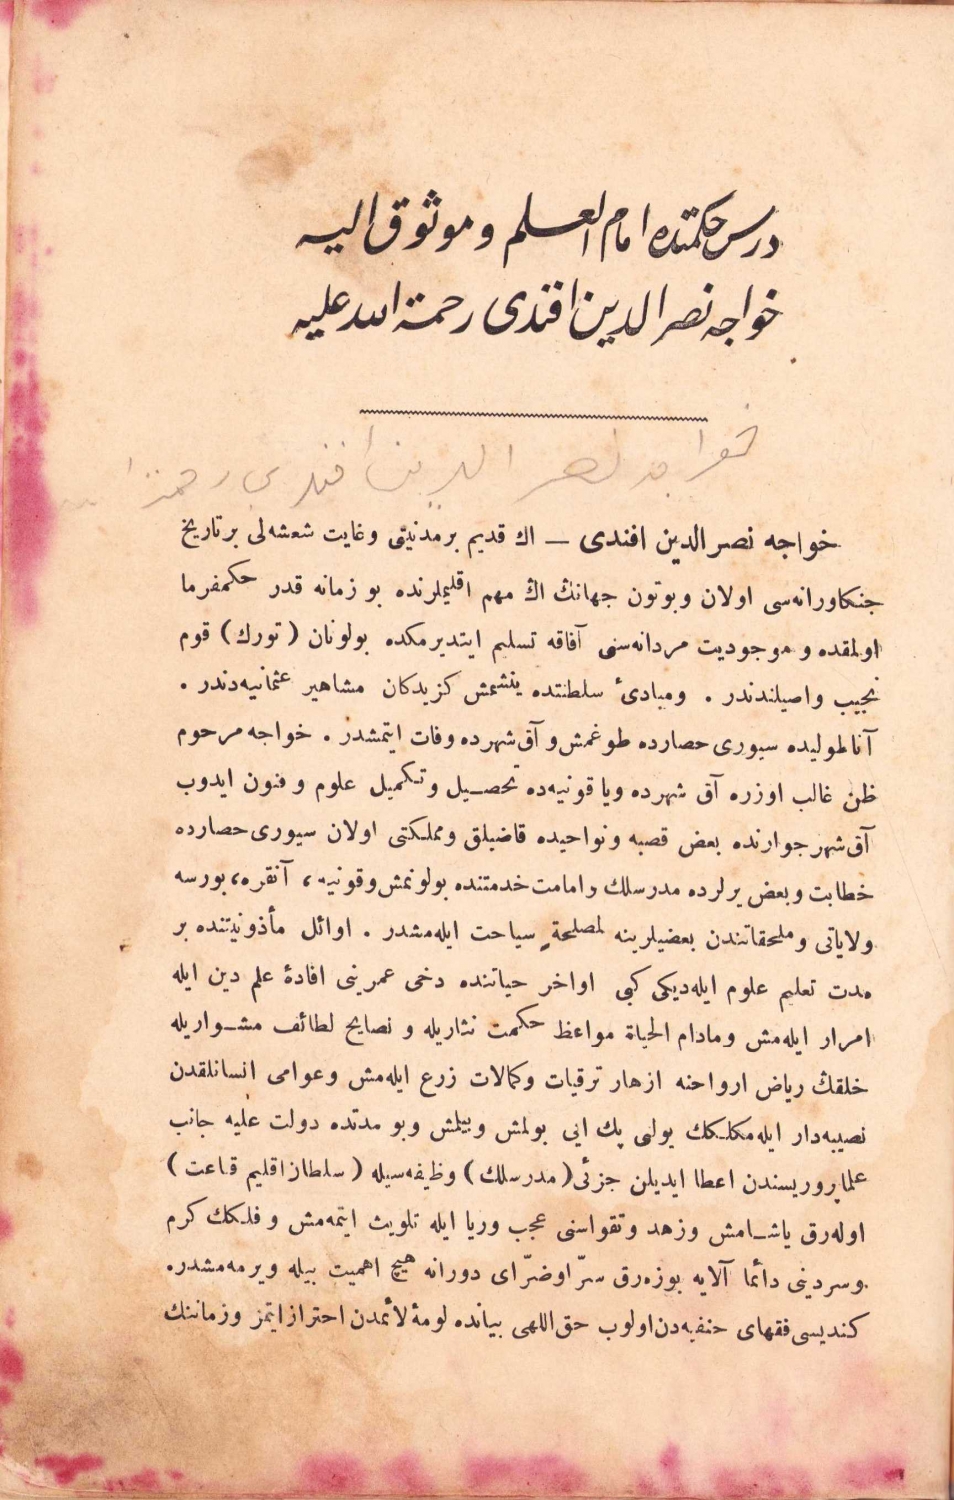 درس حكمتده امام العلم و موثوق اليه
خواجه نصر الدين افندى رحمة الله عليه
خواجه نصر الدين افندى رحمة ا
خواجه نصر الدين افندى ــ اك قديم بر مدنيتى و غايت شعشه‌لى بر تاريخ
جنكاورانه‌سى اولان و بوتون جهانڭ اڭ مهم اقليملرنده بو زمانه قدر حكمفرما
اولمقده و موجوديت مردانه‌سنى آفاقه تسليم ايتديرمكده بولونان ( تورك ) قوم
نجيب و اصيلندندر . ومبادئ سلطنتده يتشمش كزيدكان مشاهير عثمانيه‌دندر .
آناطوليده سيورى حصارده طوغمش و آق شهرده وفات ايتمشدر . خواجه مرحوم
ظن غالب اوزره آق شهرده ويا قونيه‌ده تحصيل و تكميل علوم و فنون ايدوب
آق شهر جوارنده بعض قصبه و نواحيده قاضيلق ومملكتى اولان سيورى حصارده
خطابت و بعض يرلرده مدرسلك و امامت خدمتنده بولونمش و قونيه ، آنقره ، بورسه
ولاياتى و ملحقاتندن بعضيلرينه لمصلحةٍ سياحت ايله‌مشدر . اوائل مأذونيتنده بر
مدت تعليم علوم ايله‌ديكى كبى اواخر حياتنده دخى عمرينى افادهٔ علم دين ايله
امرار ايله‌مش و مادام الحياة مواعظ حكمت نثاريله و نصايح لطائف مشواريله
خلقڭ رياض ارواحنه ازهار ترقيات و كمالات زرع ايله‌مش و عوامى انسانلقدن
نصيبه‌دار ايله‌مكلكك يولنى پك ايى بولمش و بيلمش و بو مدتده دولت عليه جانب
علما پروريسندن اعطا ايديلن جزئى ( مدرسلك ) وظيفه‌سيله ( سلطان اقليم قناعت )
اوله‌رق ياشامش و زهد و تقواسنى عجب و ريا ايله تلويث ايتمه‌مش و فلكك كرم
وسردينى دائما آلايه بوزه‌رق سرّا و ضرّاى دورانه هيچ اهميت بيله ويرمه‌مشدر.
كنديسى فقهاى حنفيه‌دن اولوب حق اللهى بيانده لومهٔ لائمدن احتراز ايتمز و زماننك